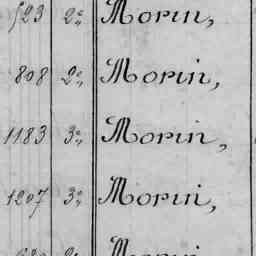 523 2e Morin,
808 2e Morin,
1183 3e Morin,
1207 3e Morin,
Morin